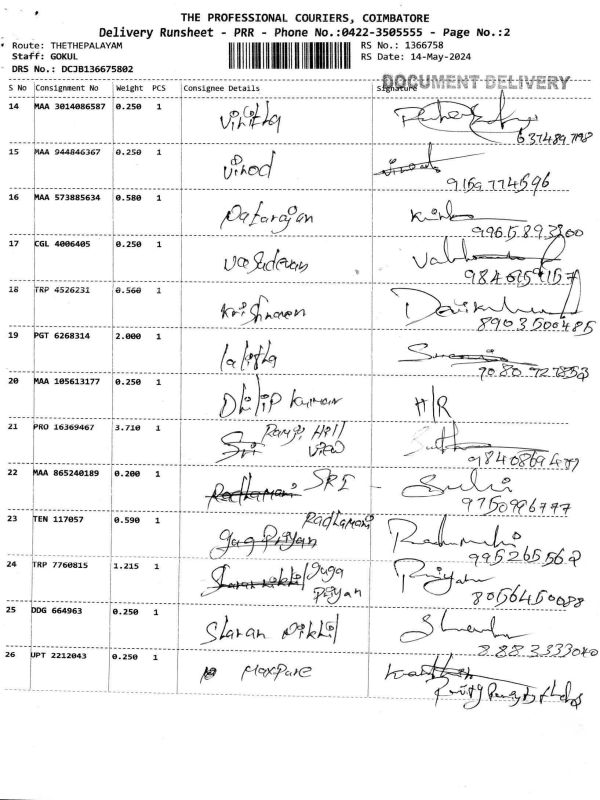 THE PROFESSIONAL COURIERS, COIMBATORE
Delivery Runsheet - PRR - Phone No.:0422-3505555 - Page No.:2
Route: THETHEPALAYAM RS No.: 1366758
Staff: GOKUL RS Date: 14-May-2024
DRS No.: DCJB136675802
DOCUMENT DELIVERY
S No Consignment No Weight PCS Consignee Details Signature
14 MAA 3014086587 0.250 1 Vinitha
15 MAA 944846367 0.250 1 Vinod vinod
9159774596
16 MAA 573885634 0.580 1 Natarajan
9965893300
17 CGL 4006405 0.250 1 Vasudevan
18 TRP 4526231 0.560 1 Krishnaven
8903500485
19 PGT 6268314 2.000 1 lalitha
20 MAA 105613177 0.250 1 Dhilip kumar H/R
21 PRO 16369467 3.710 1 Sri Ramji Hill View
22 MAA 865240189 0.200 1 Radhamani SRI
9750996777
23 TEN 117057 0.590 1 Radhamani
995265562
24 TRP 7760815 1.215 1 guga Priyan Priyan
8056450088
25 DDG 664963 0.250 1 Sharan Nikhil
8883333040
26 UPT 2212043 0.250 1 Maxpure